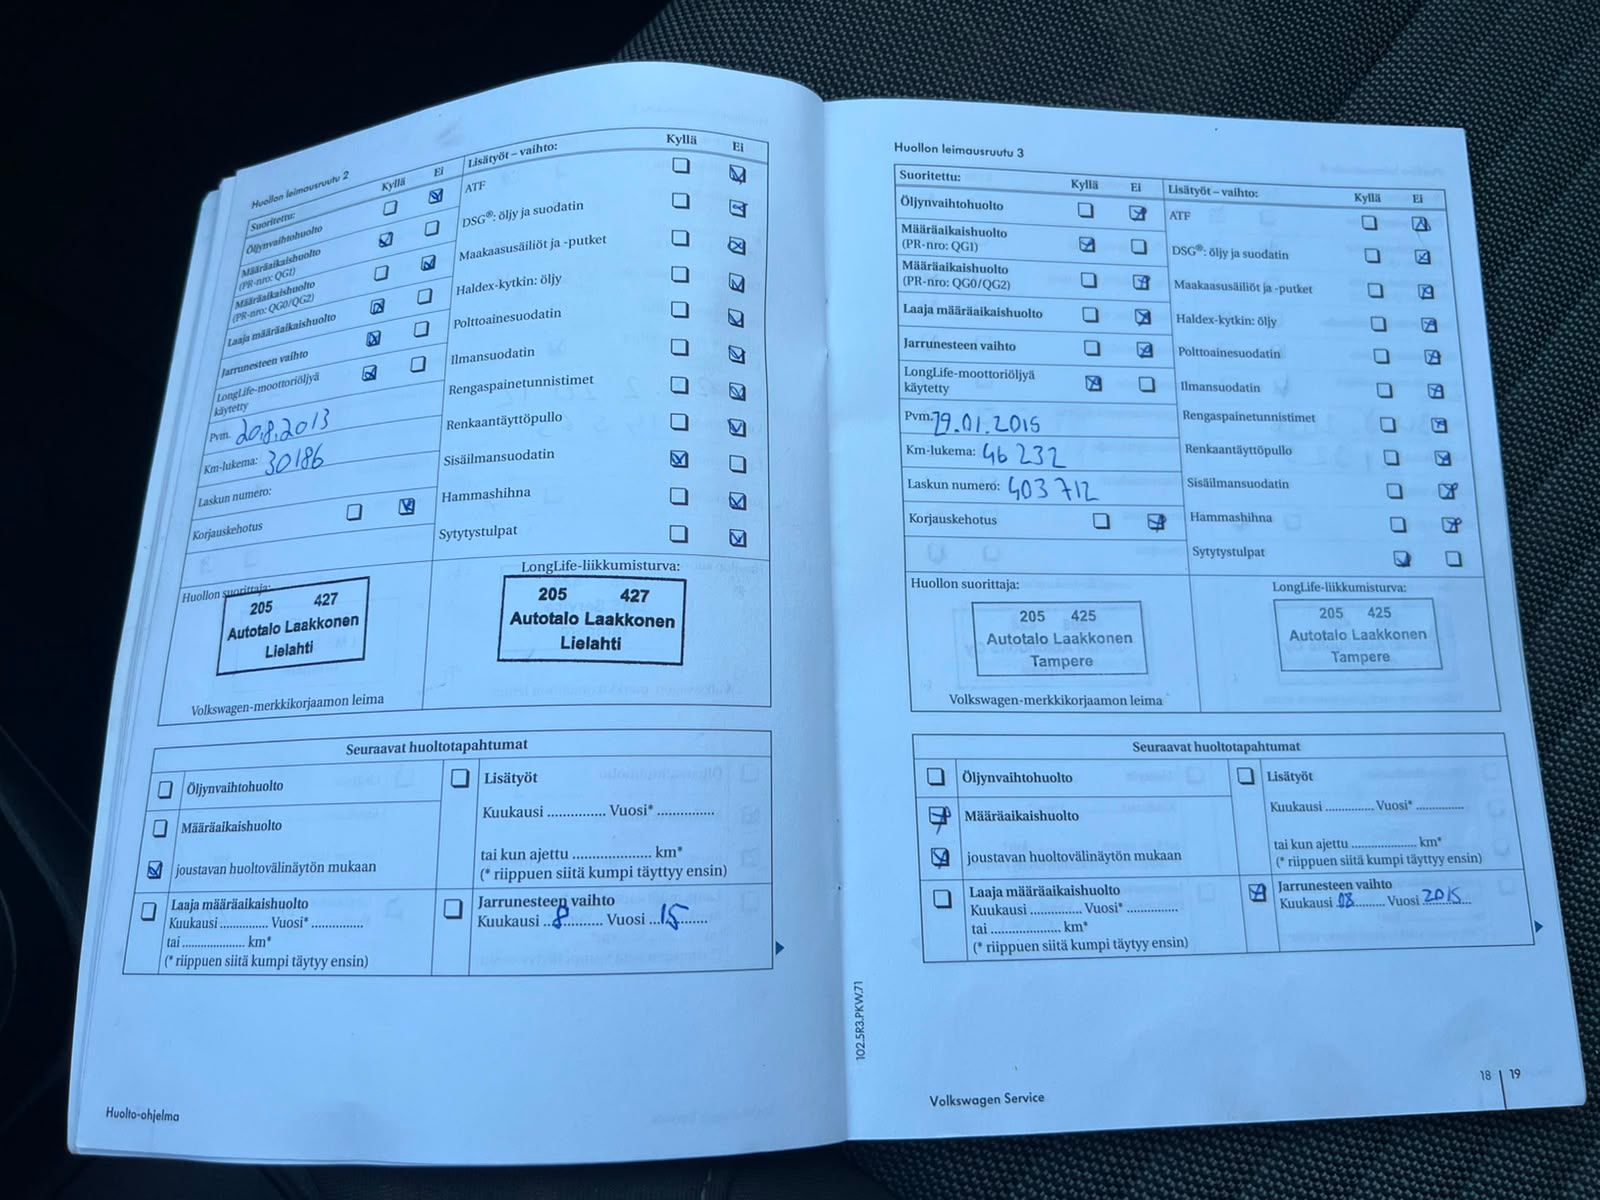 Huollon leimausruutu 2
Suoritettu: Kyllä Ei
Öljynvaihtohuolto
Määräaikaishuolto
(PR-nro: QG1)
Määräaikaishuolto
(PR-nro: QG0/QG2)
Laaja määräaikaishuolto
Jarrunesteen vaihto
LongLife-moottoriöljyä
käytetty
Pvm. 20.8.2013
Km-lukema: 30186
Laskun numero:
Korjauskehotus
Lisätyöt – vaihto: Kyllä Ei
ATF
DSG®: öljy ja suodatin
Maakaasusäiliöt ja -putket
Haldex-kytkin: öljy
Polttoainesuodatin
Ilmansuodatin
Rengaspainetunnistimet
Renkaantäyttöpullo
Sisäilmansuodatin
Hammashihna
Sytytystulpat
Huollon suorittaja:
205 427
Autotalo Laakkonen
Lielahti
Volkswagen-merkkikorjaamon leima
LongLife-liikkumisturva:
205 427
Autotalo Laakkonen
Lielahti
Seuraavat huoltotapahtumat
Öljynvaihtohuolto
Määräaikaishuolto
joustavan huoltovälinäytön mukaan
Lisätyöt
Kuukausi ............... Vuosi* ..............
tai kun ajettu .................... km*
(* riippuen siitä kumpi täyttyy ensin)
Laaja määräaikaishuolto
Kuukausi ............. Vuosi* .............
tai ................. km*
(* riippuen siitä kumpi täytyy ensin)
Jarrunesteen vaihto
Kuukausi ..8.......... Vuosi ...15.......
Huolto-ohjelma
Huollon leimausruutu 3
Suoritettu: Kyllä Ei
Öljynvaihtohuolto
Määräaikaishuolto
(PR-nro: QG1)
Määräaikaishuolto
(PR-nro: QG0/QG2)
Laaja määräaikaishuolto
Jarrunesteen vaihto
LongLife-moottoriöljyä
käytetty
Pvm. 29.01.2015
Km-lukema: 46 232
Laskun numero: 403 712
Korjauskehotus
Lisätyöt – vaihto: Kyllä Ei
ATF
DSG®: öljy ja suodatin
Maakaasusäiliöt ja -putket
Haldex-kytkin: öljy
Polttoainesuodatin
Ilmansuodatin
Rengaspainetunnistimet
Renkaantäyttöpullo
Sisäilmansuodatin
Hammashihna
Sytytystulpat
Huollon suorittaja:
205 425
Autotalo Laakkonen
Tampere
Volkswagen-merkkikorjaamon leima
LongLife-liikkumisturva:
205 425
Autotalo Laakkonen
Tampere
Seuraavat huoltotapahtumat
Öljynvaihtohuolto
Määräaikaishuolto
joustavan huoltovälinäytön mukaan
Lisätyöt
Kuukausi .............. Vuosi* ..............
tai kun ajettu .................... km*
(* riippuen siitä kumpi täyttyy ensin)
Laaja määräaikaishuolto
Kuukausi .............. Vuosi* .............
tai .................... km*
(* riippuen siitä kumpi täytyy ensin)
Jarrunesteen vaihto
Kuukausi 08......... Vuosi 2015...
102.5R3.PKW.71
Volkswagen Service
18 | 19